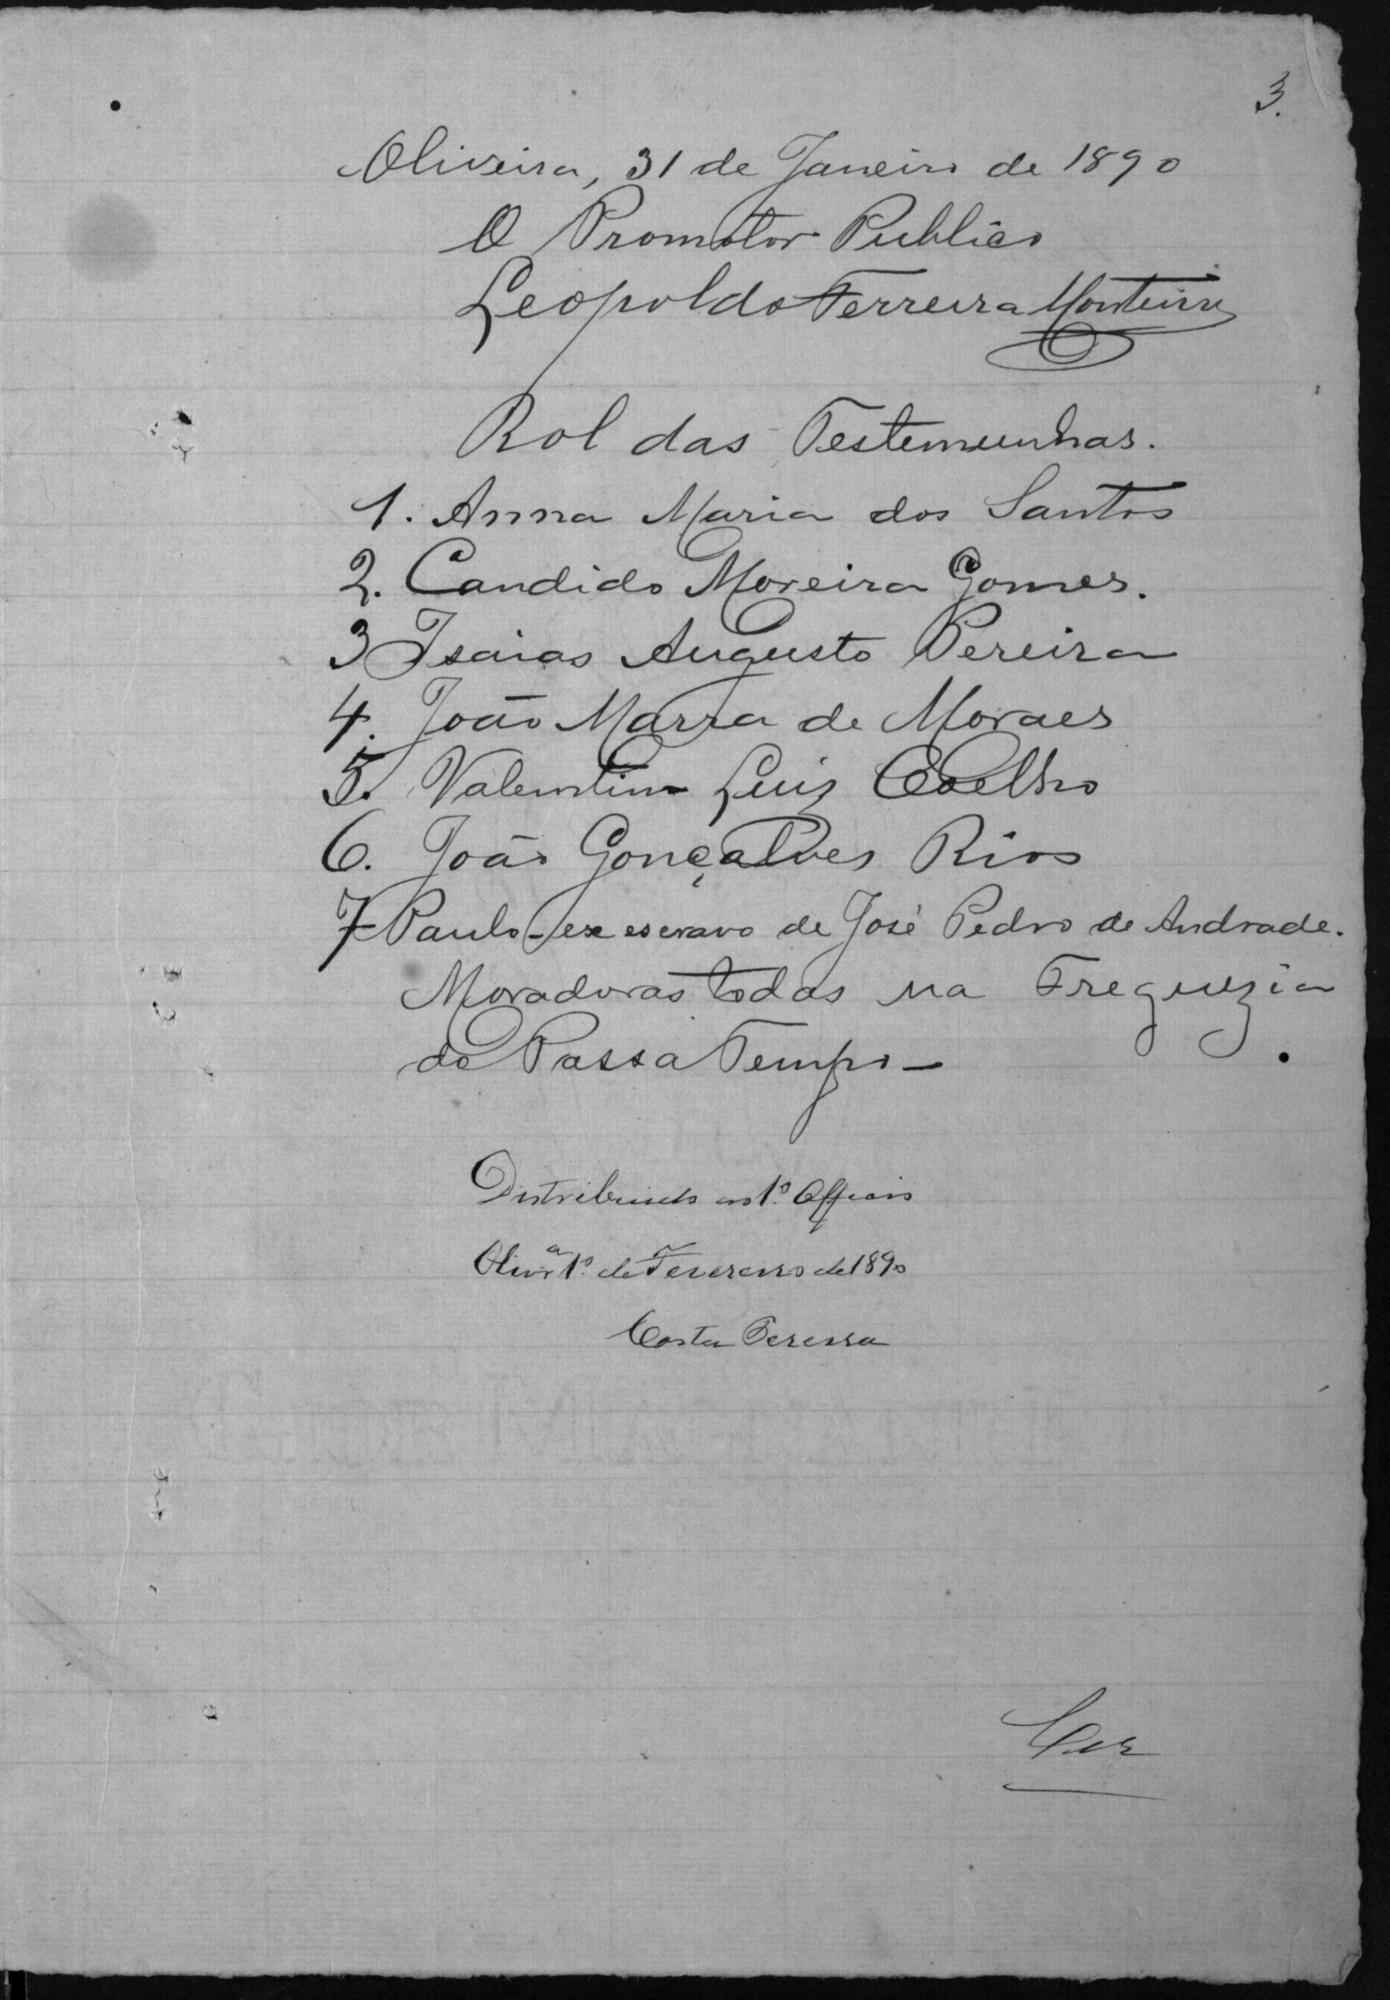 3.
Oliveira, 31 de Janeiro de 1890
O Promotor Publico
Leopoldo Ferreira Monteiro
Rol das Testemunhas.
1. Anna Maria dos Santos
2. Candido Moreira Gomes.
3 Isaias Augusto Pereira
4. João Marra de Moraes
5. Valentim Luiz Coelho
6. João Gonçalves Rios
7 Paulo - ex escravo de José Pedro de Andrade.
Moradoras todas na Freguezia
do Passa Tempo -
Distribuido ao 1º. Officio
Olivrª 1º. de Fevereiro de 1890
Costa Pereira